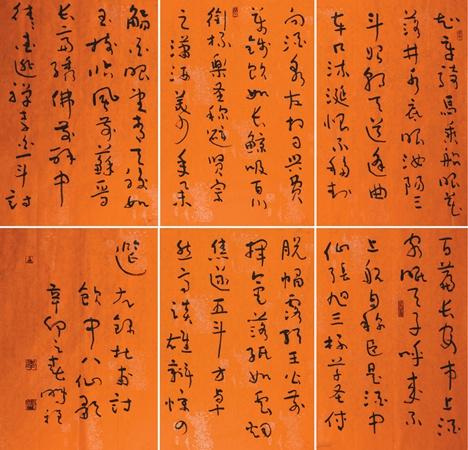 知章騎馬乘船眼花
落井水底眠汝陽三
斗始朝天道逢曲
車口流涎恨不移封
向酒泉左相日興費
萬錢飲如長鯨吸百川
銜杯樂聖稱避賢宗
之瀟洒美少年舉
觴白眼望青天皎如
玉樹臨風前蘇晉
長齋繡佛前醉中
往往愛逃禪李白一斗詩
百篇長安市上酒
家眠天子呼來不
上船自稱臣是酒中
仙張旭三杯草聖傳
脫帽露頂王公前
揮毫落紙如雲烟
焦遂五斗方卓
然高談雄辯驚四
筵右錄杜甫詩
飲中八仙歌
辛卯之春